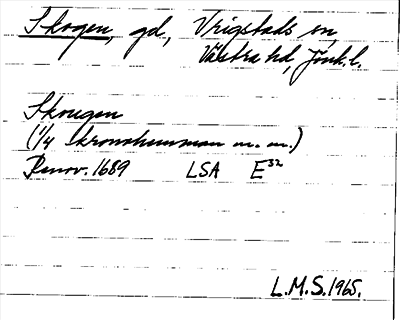 Skogen, gd, Vrigstads sn,
Västra hd, Jönk.l.
Skougen
(1/4 Skronohemman m.m.)
Renov. 1689 LSA E³²
L.M.S. 1965.